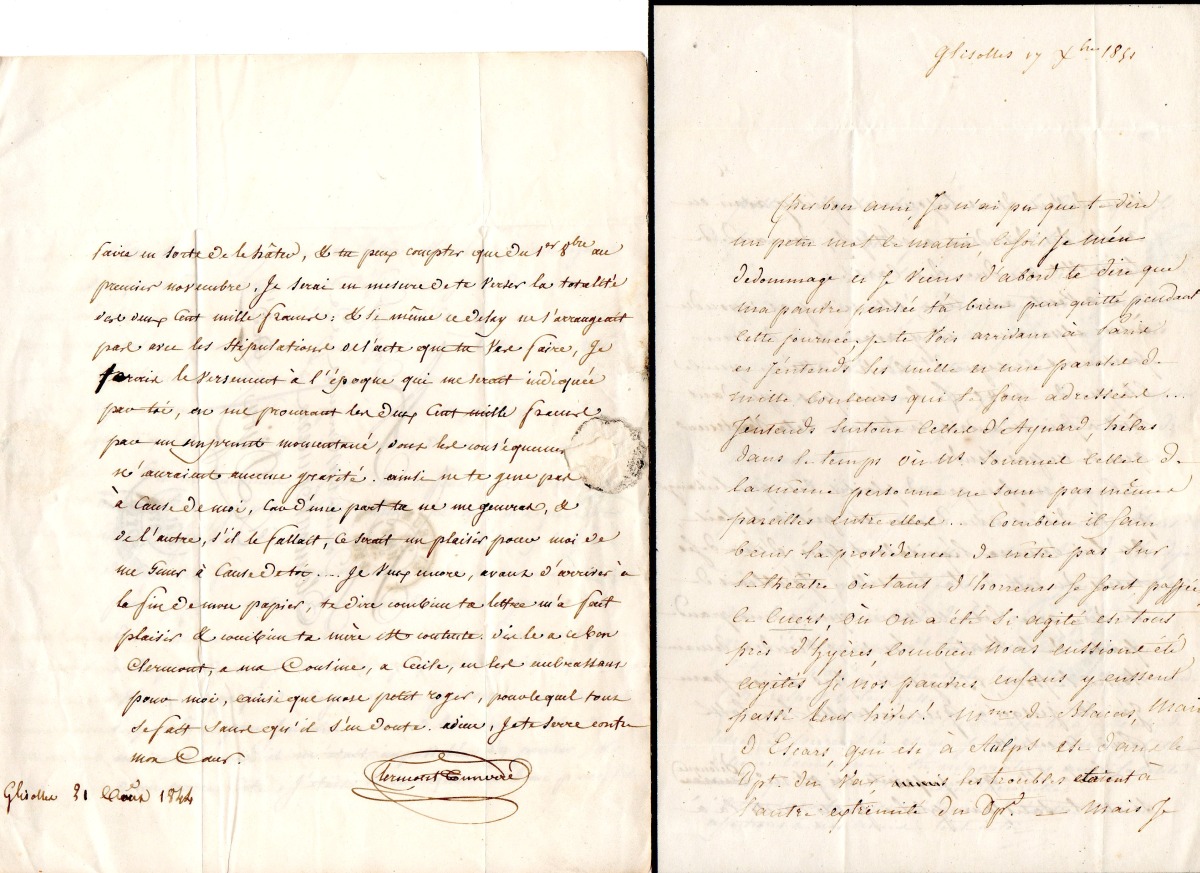 faire en sorte de le hâter, & tu peux compter que du 1er 8bre au
premier novembre, Je serai en mesure de te verser la totalité
des deux Cent mille francs : & si même ce delay ne s'arrangeait
pas avec les Stipulations de l'acte que tu vas faire, Je
ferais le versement à l'époque qui me serait indiquée
par toi, en me procurant les deux Cent mille francs
par un emprunt momentané, dont les conséquences
n'auraient aucune gravité. ainsi ne te gene pas
à Cause de moi, Car d'une part tu ne me generas, &
de l'autre, s'il le fallait, ce serait un plaisir pour moi de
me gener à Cause de toi .... Je veux encore, avant d'arriver à
la fin de mon papier, te dire combien ta lettre m'a fait
plaisir & combien ta mère est contente. dis le a ce bon
Clermont, a ma Cousine, a Cecile, en les embrassant
pour moi, ainsi que mon petit roger, pour lequel tout
se fait sans qu'il s'en doute. adieu, Je te serre contre
mon Cœur.
Clermont Tonnerre
Glisolles 31 Août 1844
Glisolles 17 Xbre 1851
Cher bon ami Je n'ai pu que te dire
un petit mot le matin, ce soir Je m'en
dedommage et Je viens d'abord te dire que
ma pauvre pensée t'a bien peu quitté pendant
cette journée, Je te vois arrivant à Paris
et J'entends les mille et une paroles de
mille couleurs qui te sont adressées ...
J'entends surtout celles d'Aynard, hélas
dans le temps où nous sommes celles de
la même personne ne sont pas mêmes
pareilles entre elles ... Combien il faut
benir la providence de n'être pas sur
le théatre où tant d'horreurs se sont passées
le Cuers, où on a été si agité est tout
près d'hyères, combien nous eussions été
agités si nos pauvres enfans y eussent
passé leur hiver ! Mme de Blacas,
d'Escars, qui est à Aulps est dans le
Dpt. du Var, les troubles etaient à
l'autre extremité du Dpt. — Mais Je